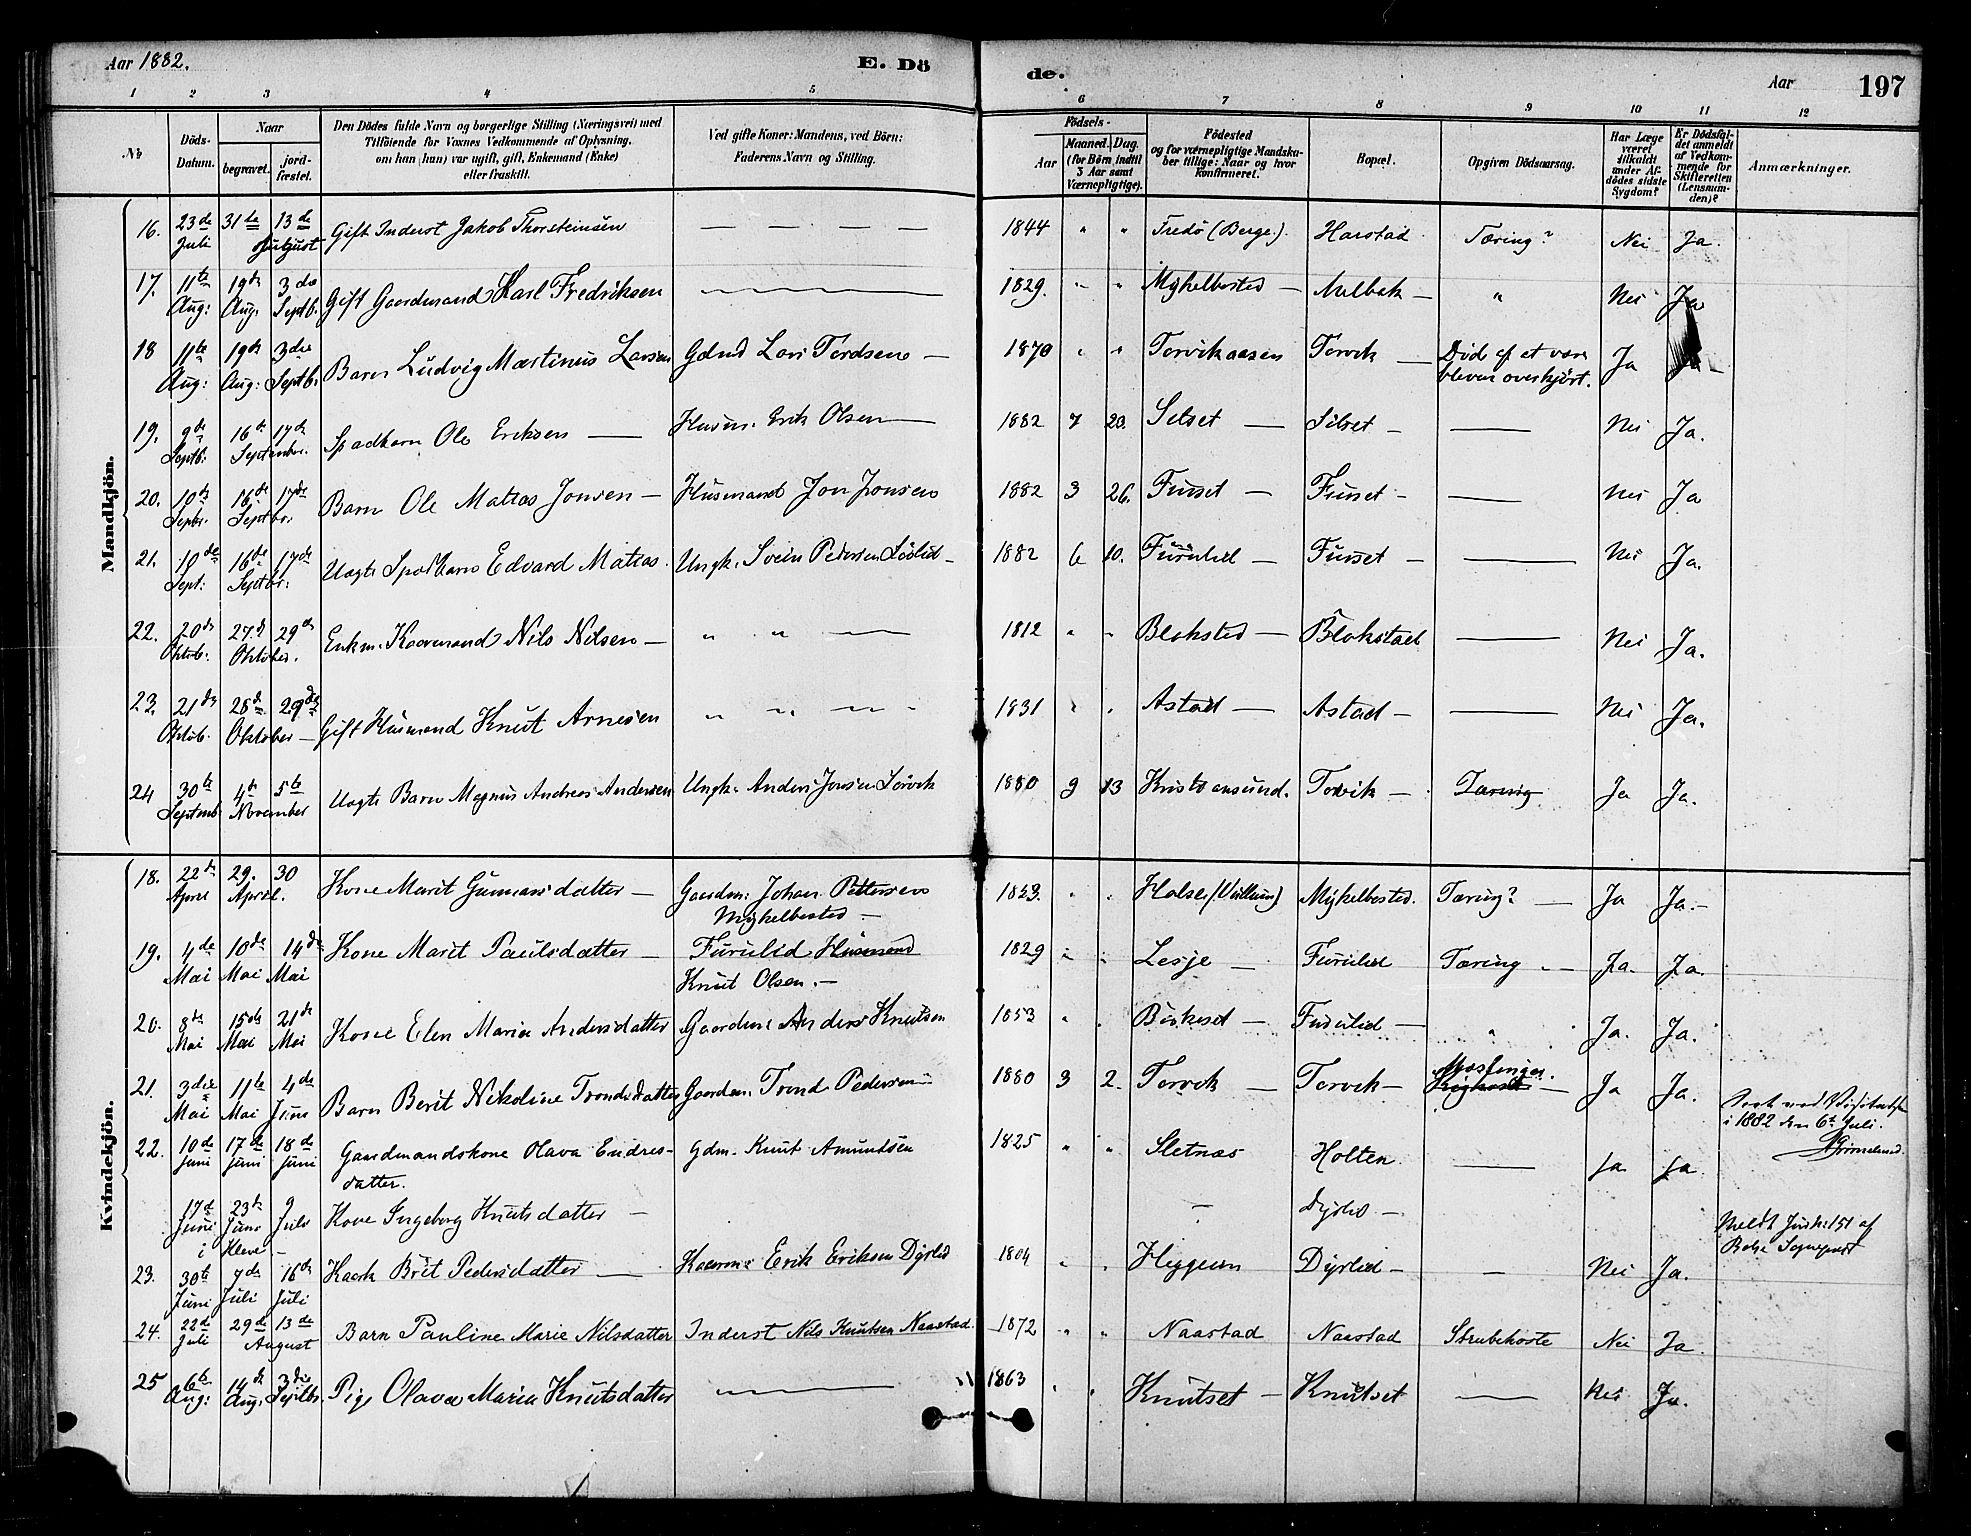 Aar 1882. E. Dö de. Aar 197
1 2 3 4 5 6 7 8 9 10 11 12
No Döds-Datum. Naar begravet. jordfæstet. Den Dödes fulde Navn og borgerlige Stilling (Næringsvei) med Tilföiende for Voxnes Vedkommende af Oplysning, om han (hun) var ugift, gift, Enkemand (Enke) eller fraskilt. Ved gifte Koner: Mandens, ved Börn: Faderens Navn og Stilling. Födsels- Aar Maaned. Dag. (for Börn indtil 3 Aar samt Værnepligtige). Födested og for værnepligtige Mandskaber tillige: Naar og hvor Konfirmeret. Bopæl. Opgiven Dödsaarsag. Har Læge været tilkaldt under Afdödes sidste Sygdom? Er Dödsfaldet anmeldt af Vedkommende for Skifteretten (Lensmanden)? Anmærkninger.
Mandkjön.
16. 23de Juli 31te 13de August Gift Inderst Jakob Thorsteinsen — — — — 1844 " " Fredö (Berge). Harstad Tæring? Nei Ja.
17. 11te Aug: 19de Aug. 3die Septb. Gift Gaardmand Karl Fredriksen 1829. " " Myhelbosted — Melbak — " Nei Ja
18 11te Aug: 19de Aug: 3die Septb. Barn Ludvig Martinus Larsen Gdmd Lars Tordsen — 1870 " " Torvikaasen Torvik — Död af at være bleven overkjört. Ja Ja
19. 9de Septb: 16de 17de September. Spadbarn Ole Eriksen — Husm. Erik Olsen — 1882 7 20. Silset — Silset — — Nei Ja.
20. 10de Septbr. 16de 17de Septbr: Barn Ole Matias Jonsen — Husmand Jon Jonsen 1882 3 26. Furset — Furset — — Nei Ja
21. 10de Sept: 16de 17de Septbr: Uægte Spædbarn Edvard Matias. Ungk. Svein Pedersen Löslid — 1882 6 10. Furulid — Furset — — Nei Ja.
22. 20de Oktob. 27de 29de Oktober. Enkm. Kaarmand Nils Nilsen — " " — 1812 " " Blaksted — Blakstad — Nei Ja.
23. 21de Oktob. 28de 29de Oktober — Gift Husmand Knut Arnesen " " " " 1831 " " Astad — Astad — — Nei Ja.
24 30te Septemb. 4de 5te November Uægte Barn Magnus Andreas Andersen Ungk. Anders Jonsen Torvik 1880 9 13 Kristiansund. Torvik — Tæring Ja Ja.
Kvindekjön.
18. 22de April 29. 30 April. Kone Marit Gunnarsdatter — Gaardm: Johan Pettersen Myhelbosted — 1853. " " Halse Myhelbosted. Tæring? — Ja Ja. —
19. 4de Mai 10de Mai 14de Mai Kone Marit Paulsdatter — Furulid Husmand Knut Olsen. — 1829 " " Lesje — Furulid Tæring — Ja. Ja.
20. 8de Mai 15de Mai 21de Mai Kone Elen Maria Andersdatter Gaardm: Anders Knutsen 1853 " " Birkeset — Furulid — " Ja. Ja.
21. 3die Mai 11te Mai 4de Juni Barn Berit Nikoline Trondsdatter Gaardm. Trond Pedersen 1880 3 2. Torvik — Torvik — Mæslinger. Ja Ja.
i 1882 den 6te Juli.
22. 10de Juni 17de Juni 18de Juni Gaardmandskone Olava Endresdatter. Gdm. Knut Amundsen 1825 " " Sletnæs Holten. — Ja Ja.
17de Juni i Kleve 23de Juni 9 Juli — Kone Ingeborg Knutsdatter — — Dyrlid —
23. 30te Juni 7de Juli 16de Juli Kaark Brit Pedersdatter — Kaarm: Erik Eriksen Dyrlid 1804 " " Heggem Dyrlid — — Nei Ja.
24. 22de Juli 29de 13de August Barn Pauline Marie Nilsdatter Inderst Nils Knutsen Naastad 1872 " " Naastad Naastad Strubehoste Nei Ja.
25 6te Aug: 14de Aug. 3die Septbr. Pige Olava Maria Knutsdatter — 1863 " " Knutset — Knutset — Nei Ja.